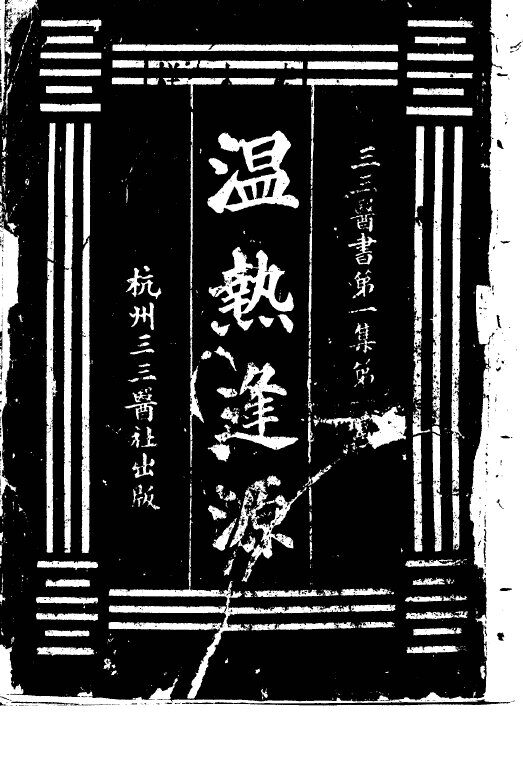 三三醫書第一集第
温熱逢源
杭州三三醫社出版